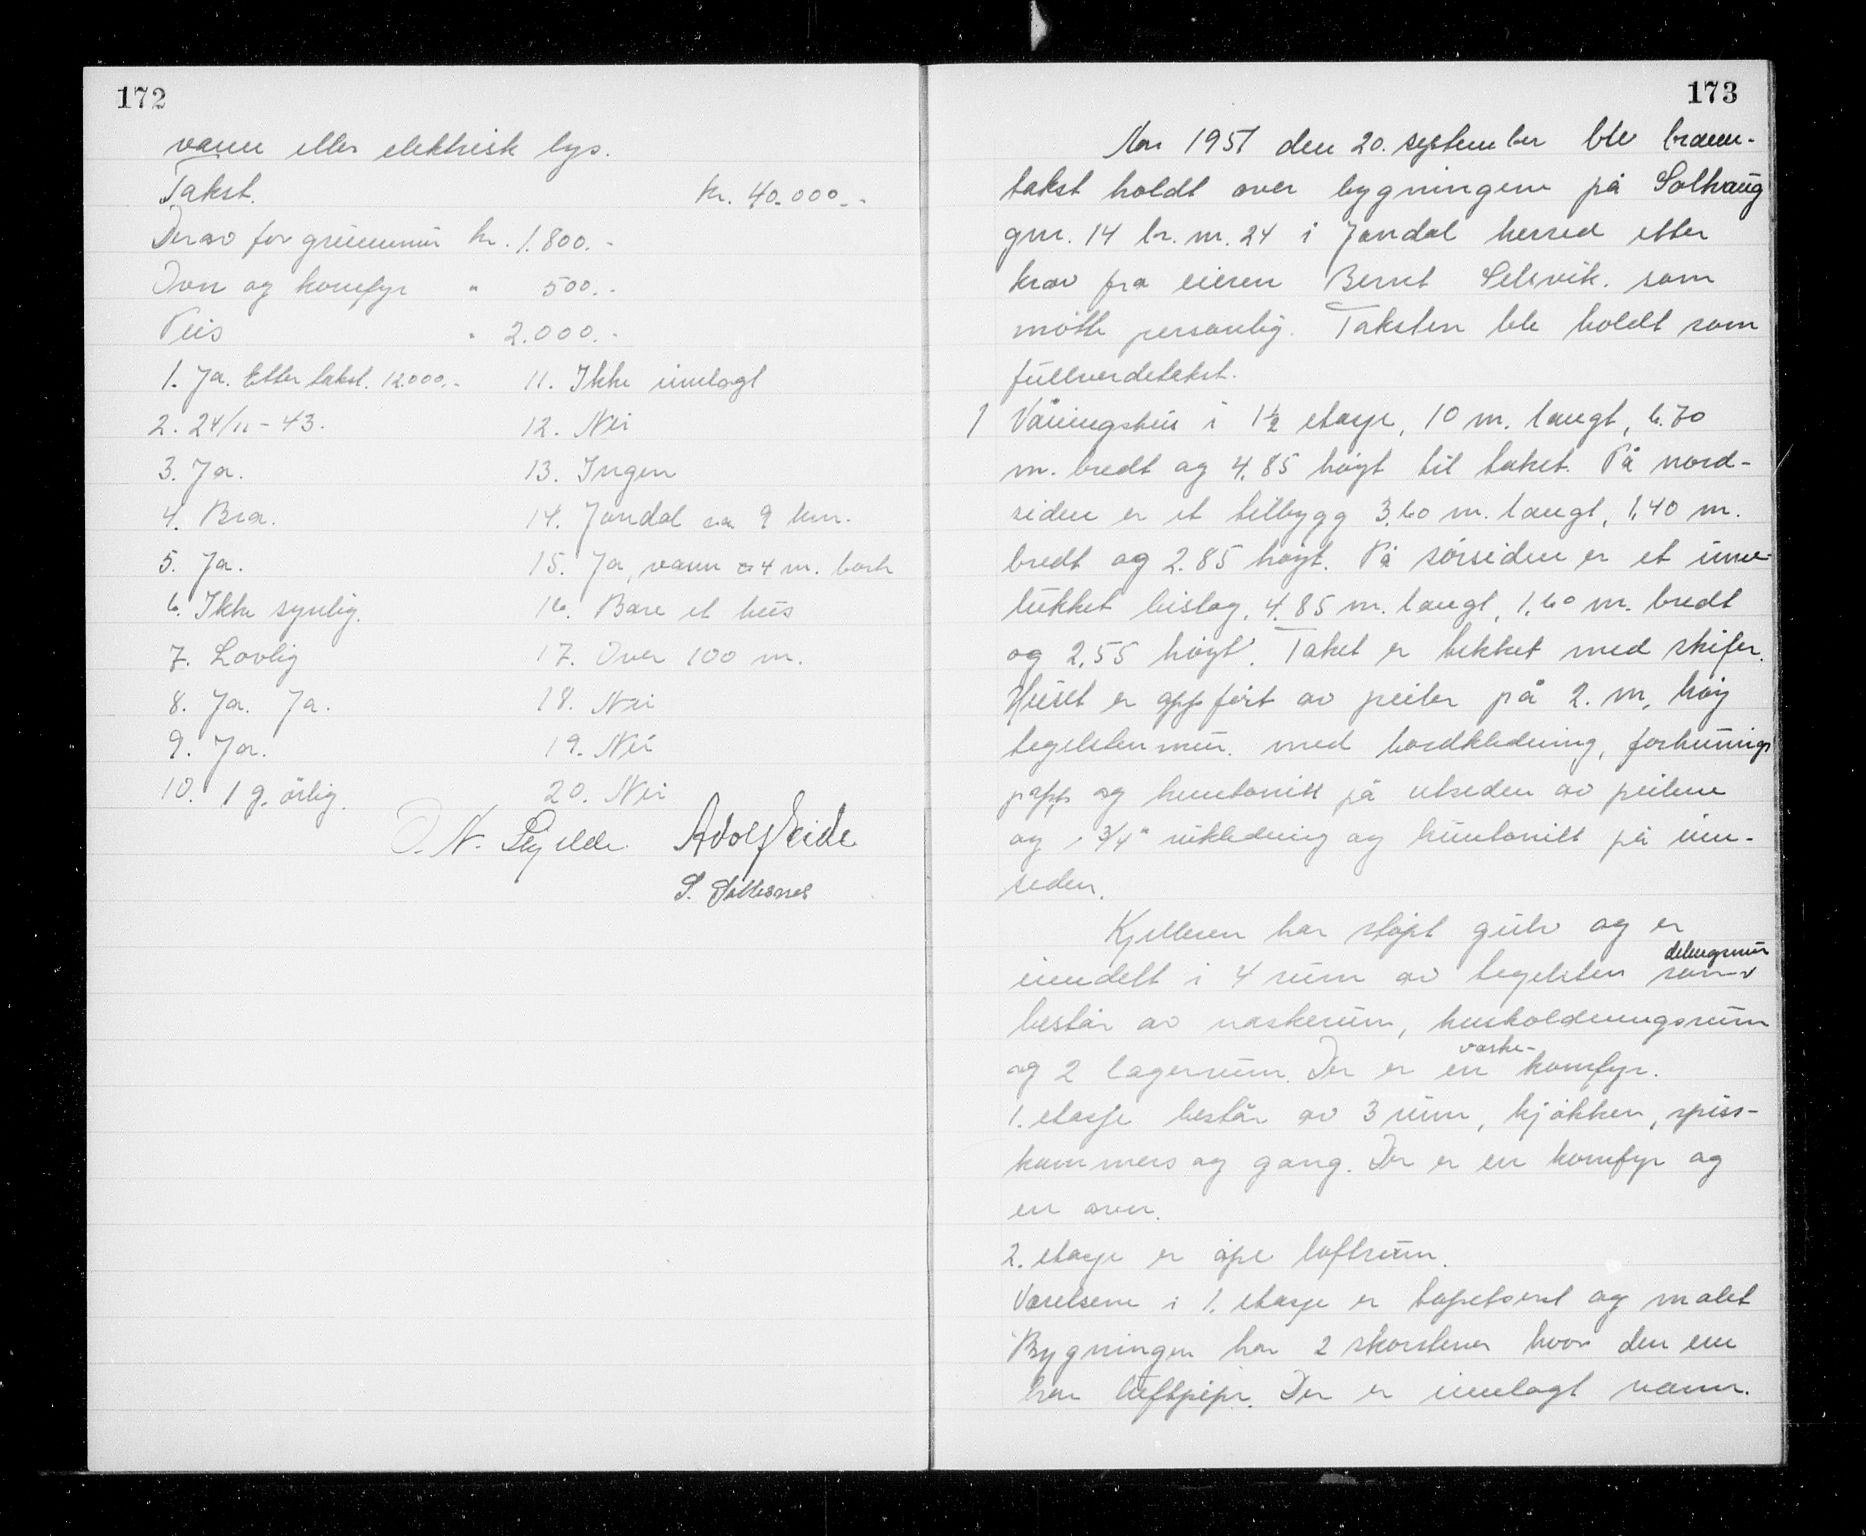 172
vann eller elektrisk lys.
Takst. kr. 40.000.-
Derav for grunnmur kr. 1.800.-
Ovn og komfyr " 500.-
Peis " 2.000.-
1. Ja. Etter takst. 12000.-
2. 24/11-43.
3. Ja.
4. Bra.
5. Ja.
6. Ikke synlig.
7. Lovlig
8. Ja. Ja.
9. Ja.
10. 1 g. årlig.
11. Ikke innlagt
12. Nei
13. Ingen
14. Jondal ca 9 km.
15. Ja, vann 4 m. bort
16. Bare et hus
17. Over 100 m.
18. Nei
19. Nei
20. Nei
O. N. Skjelde. Adolf Eide
S.
173
1951 den 20. september ble brann-
takst holdt over bygningene på Solhaug
gnr. 14 br. nr. 24 i Jondal herred etter
krav fra eieren Bernt Selsvik. som
møtte personlig. Taksten ble holdt som
fullverdetakst.
1 Våningshus i 1½ etasje, 10 m. langt, 6.70
m. bredt og 4,85 høgt til taket. På nord-
siden er et tilbygg 3,60 m. langt, 1,40 m.
bredt og 2.85 høgt. På sørsiden er et inne-
lukket bislag, 4,85 m. langt, 1,60 m. bredt
og 2,55 høgt. Taket er tekket med skifer.
Huset er oppført av peiler på 2. m. høg
teglstenmur. med bordkledning, forhunings
papp og huntonitt på utsiden av peilene
og 3/4" kledning og huntonitt på inn-
siden.
Kjelleren har støpt gulv og er
inndelt i 4 rum av teglsten delingsmur
består av vaskerum, husholdningsrum
og 2 lagerrum. Der er en vaske- komfyr.
1. etasje består av 3 rum, kjøkken, spiss-
kammers og gang. Der er en komfyr og
en ovn.
2. etasje er åpe loftsrum.
Værelsene i 1. etasje er tapetsert og malet
Bygningen har 2 skorstener hvor den ene
har luftpipe. Der er innlagt vann.